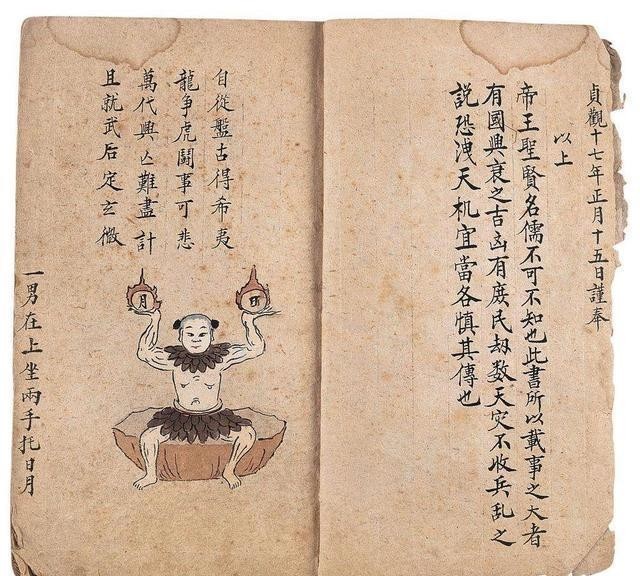 貞觀十七年正月十五日謹奉
以上
帝王聖賢名儒不可不知也此書所以載事之大者
有國興衰之吉凶有庶民劫数天灾不收兵乱之
説恐洩天机宜當各慎其傳也
自從盤古得希夷
龍爭虎鬪事可悲
萬代興亾難盡計
且就武后定玄微
日
月
一男在上坐兩手托日月